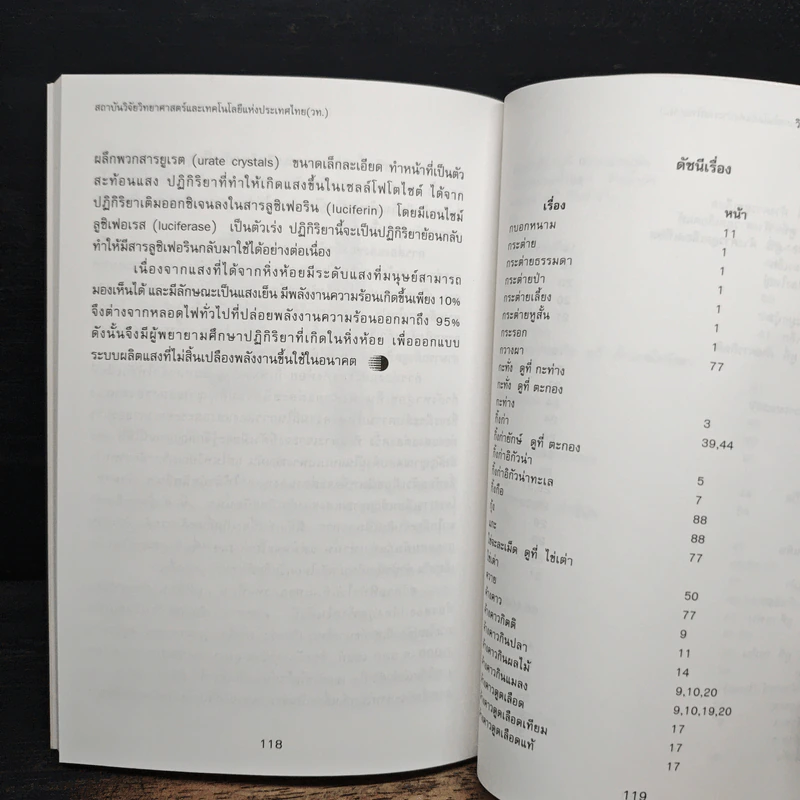 สถาบันวิจัยวิทยาศาสตร์และเทคโนโลยีแห่งประเทศไทย(วท.)
ผลึกพวกสารยูเรต (urate crystals) ขนาดเล็กละเอียด ทำหน้าที่เป็นตัว
สะท้อนแสง ปฏิกิริยาที่ทำให้เกิดแสงขึ้นในเซลล์โฟโตไซต์ ได้จาก
ปฏิกิริยาเติมออกซิเจนลงในสารลูซิเฟอริน (luciferin) โดยมีเอนไซม์
ลูซิเฟอเรส (luciferase) เป็นตัวเร่ง ปฏิกิริยานี้จะเป็นปฏิกิริยาย้อนกลับ
ทำให้มีสารลูซิเฟอรินกลับมาใช้ได้อย่างต่อเนื่อง
เนื่องจากแสงที่ได้จากหิ่งห้อยมีระดับแสงที่มนุษย์สามารถ
มองเห็นได้ และมีลักษณะเป็นแสงเย็น มีพลังงานความร้อนเกิดขึ้นเพียง 10%
จึงต่างจากหลอดไฟทั่วไปที่ปล่อยพลังงานความร้อนออกมาถึง 95%
ดังนั้นจึงมีผู้พยายามศึกษาปฏิกิริยาที่เกิดในหิ่งห้อย เพื่อออกแบบ
ระบบผลิตแสงที่ไม่สิ้นเปลืองพลังงานขึ้นใช้ในอนาคต
118
ดัชนีเรื่อง
เรื่อง หน้า
กบอกหนาม 11
กระต่าย 1
กระต่ายธรรมดา 1
กระต่ายป่า 1
กระต่ายเลี้ยง 1
กระต่ายหูสั้น 1
กระรอก 1
กวางผา 77
กะทั่ง ดูที่ กะท่าง
กะทั่ง ดูที่ ตะกอง
กะท่าง 3
กิ้งก่า 39,44
กิ้งก่ายักษ์ ดูที่ ตะกอง
กิ้งก่าอิกัวน่า 5
กิ้งก่าอิกัวน่าทะเล 7
กิ้งกือ 88
กุ้ง 88
แกะ 77
ไข่จะละเม็ด ดูที่ ไข่เต่า
ไข่เต่า 50
ควาย 77
ค้างคาว 9
ค้างคาวกิตติ 11
ค้างคาวกินปลา 14
ค้างคาวกินผลไม้ 9,10,20
ค้างคาวกินแมลง 9,10,19,20
ค้างคาวดูดเลือด 17
ค้างคาวดูดเลือดเทียม 17
ค้างคาวดูดเลือดแท้ 17
119